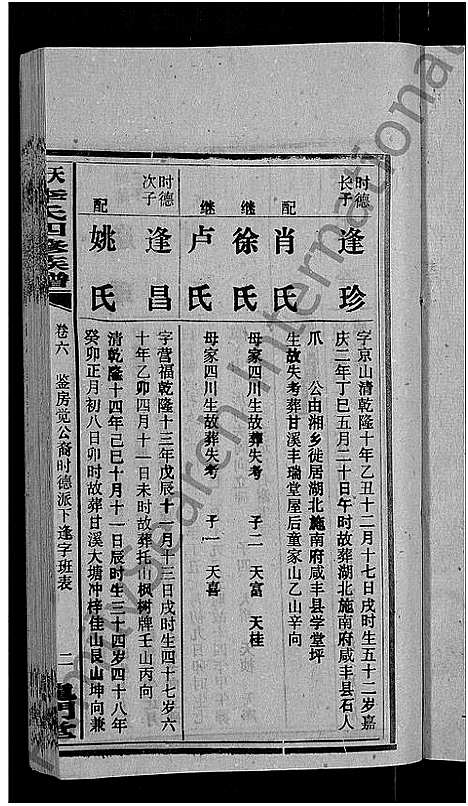 时德长子
逢珍
字京山清乾隆十年乙丑十二月十七日戌时生五十二岁嘉
庆二年丁巳五月二十日午时故葬湖北施南府咸丰县石人
爪 公由湘乡徙居湖北施南府咸丰县学堂坪
配
肖氏
生故失考葬甘溪丰瑞堂屋后童家山乙山辛向
继
徐氏
母家四川生故葬失考 子二 天富 天桂
继
卢氏
母家四川生故葬失考 子一 天喜
时德次子
逢昌
字营福乾隆十三年戊辰十一月二十三日戌时生四十七岁六
十年乙卯四月十一日未时故葬托山枫树牌壬山丙向
配
姚氏
清乾隆十四年己巳十月十一日辰时生三十四岁四十八年
癸卯正月初八日卯时故葬甘溪大塘冲梓佳山艮山坤向兼
氏四修族谱
卷六 鉴房觉公裔时德派下逢字班表
二